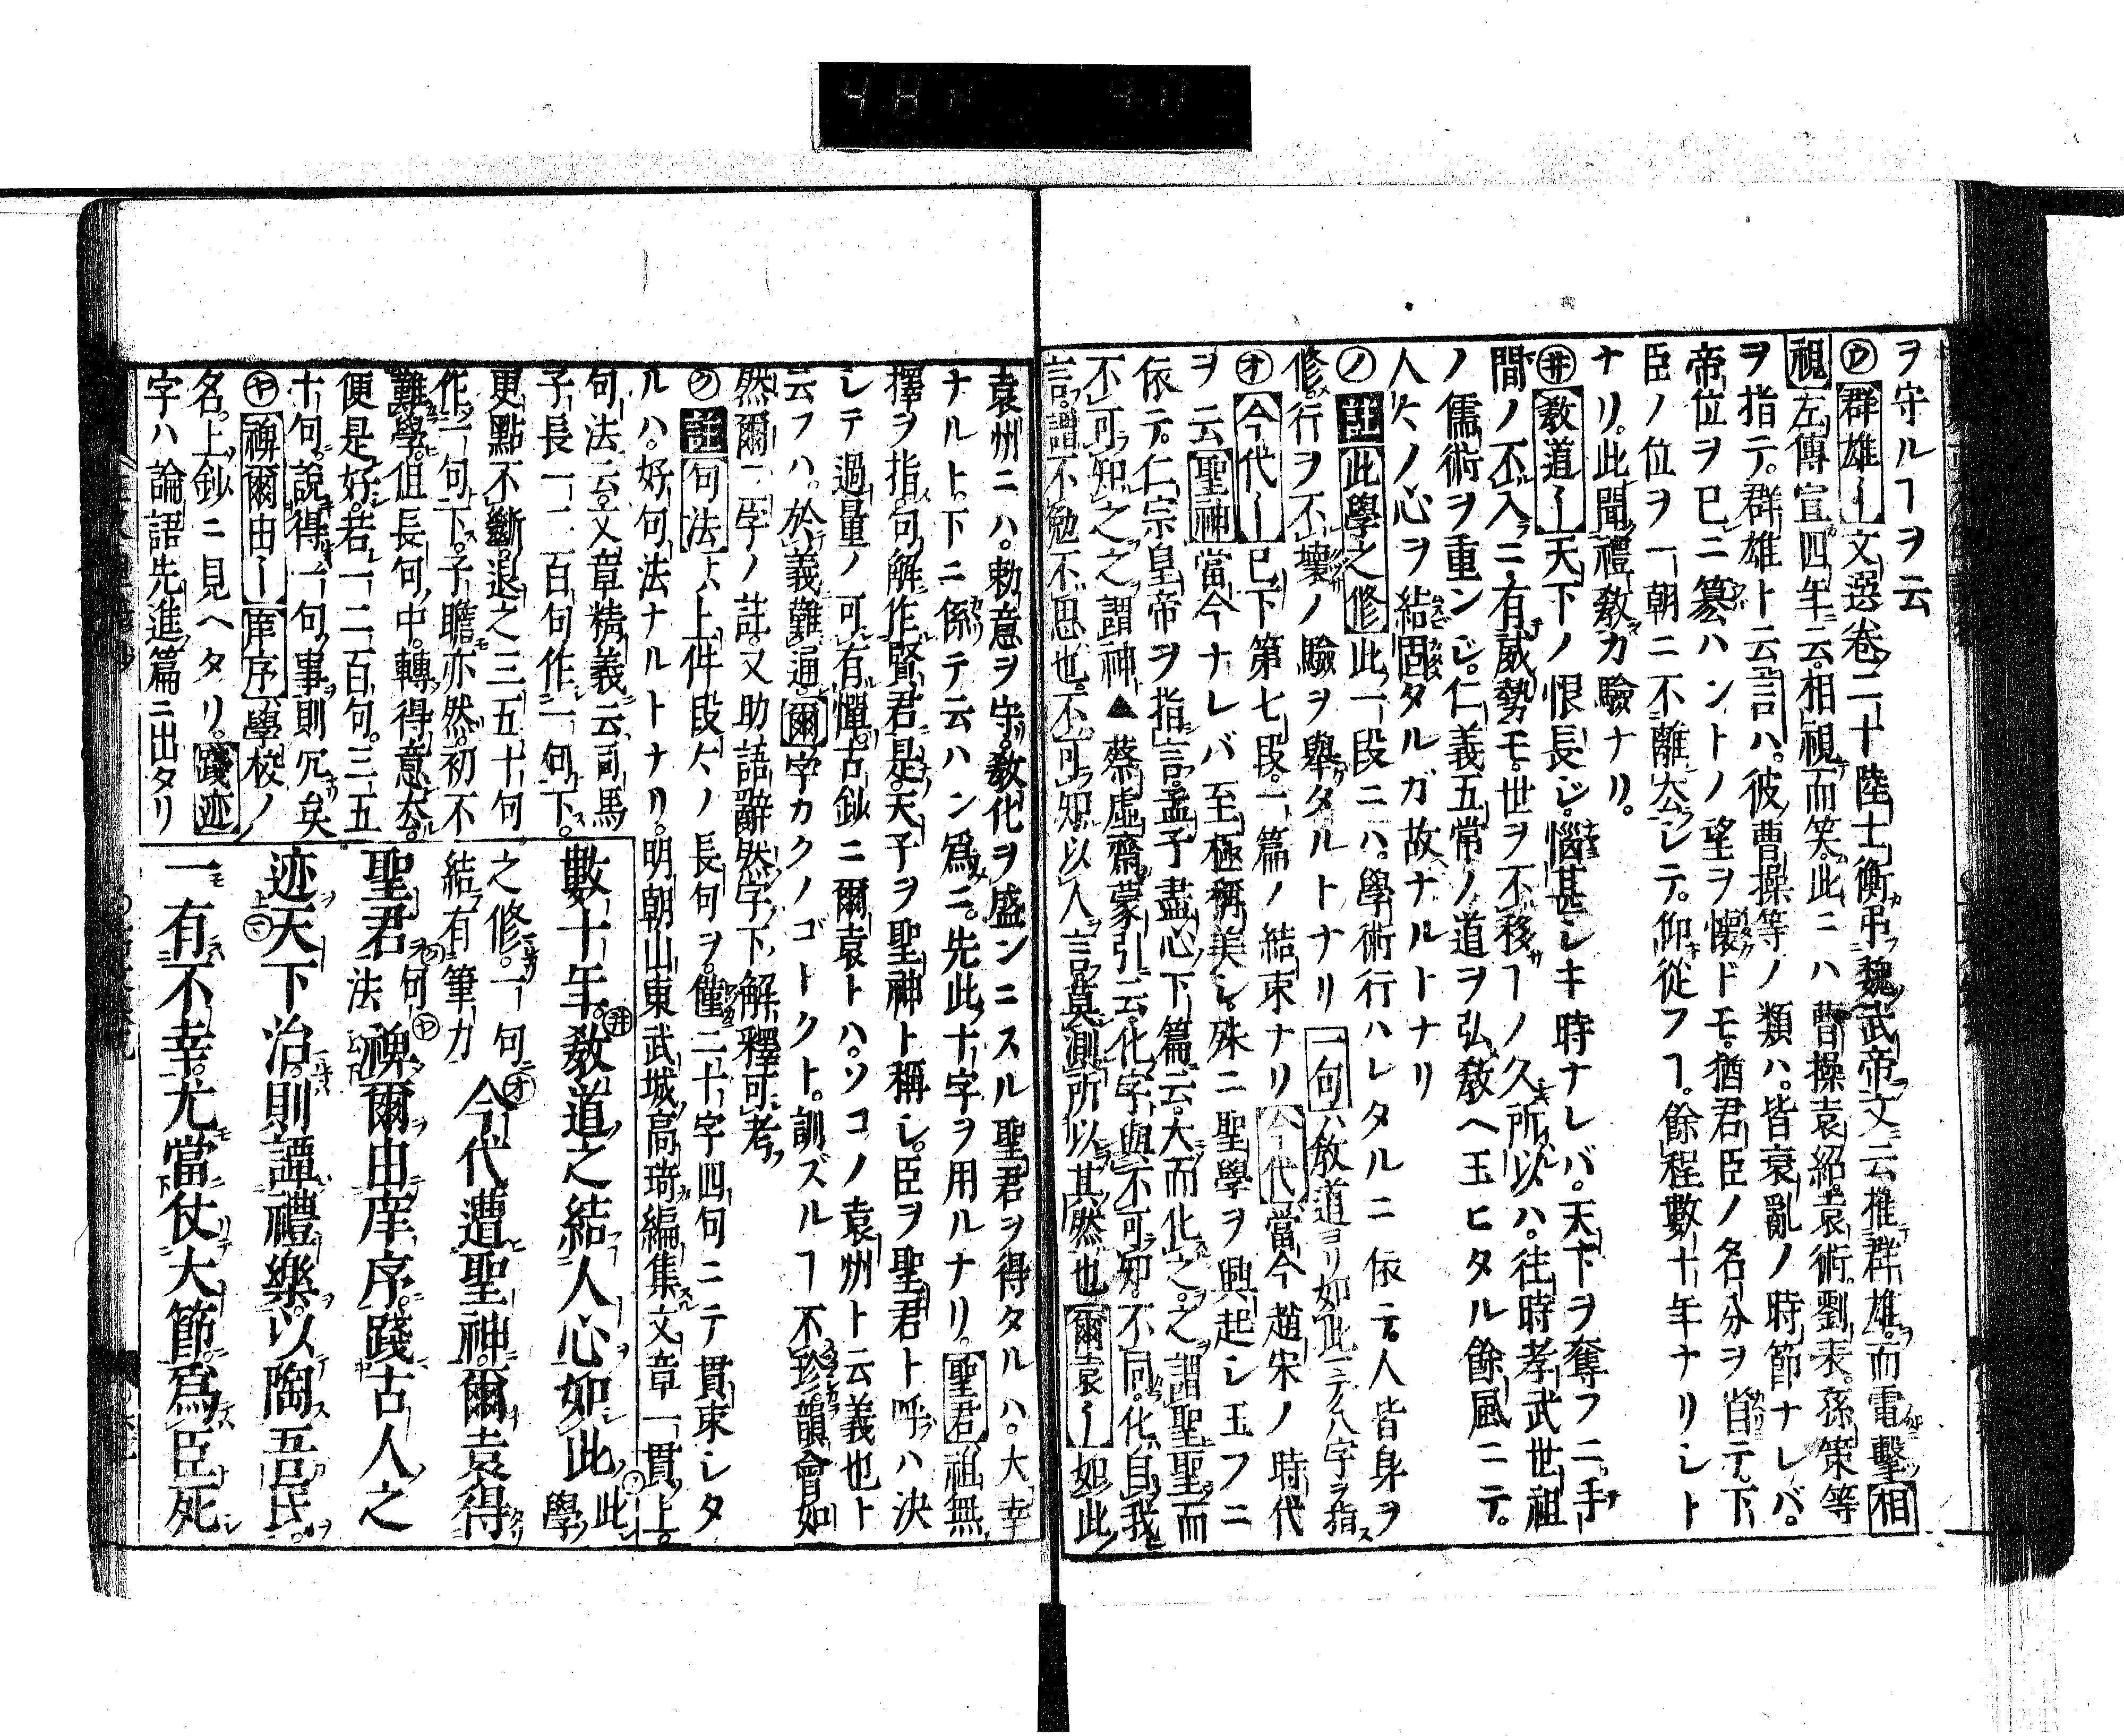 ヲ守ルヿヲ云
㋒群雄〡文選卷二十陸士衡弔魏武帝文云推群雄而電擊相
視左傳宣四年云相視而笑此ニハ曹操袁紹袁術劉表孫策等
ヲ指テ群雄ト云言ハ彼曹操等ノ類ハ皆衰亂ノ時節ナレバ
帝位ヲ已ニ簒ハントノ望ヲ懷ドモ猶君臣ノ名分ヲ省テ下
臣ノ位ヲ一朝ニ不離去シテ仰從フヿ餘程數十年ナリシト
ナリ此聞禮教カ驗ナリ
㋼教道〡天下ノ恨長ジ惱甚シキ時ナレバ天下ヲ奪フニ手
間ノ不入ニ有威勢モ世ヲ不移ヿノ久所以ハ往時孝武世祖
ノ儒術ヲ重ンジ仁義五常ノ道ヲ弘教ヘ玉ヒタル餘風ニテ
人々ノ心ヲ結固タルガ故ナルトナリ
㋨註此學之修此一段ニハ學術行ハレタルニ依テ人皆身ヲ
修行ヲ不壞ノ驗ヲ舉タルトナリ一句ハ教道ヨリ如此三テ八字ヲ指ス
㋔今代〡已下第七段一篇ノ結束ナリ今代當今趙宋ノ時代
ヲ云聖神當今ナレバ至極稱美シ殊ニ聖學ヲ興起シ玉フニ
依テ仁宗皇帝ヲ指言孟子盡心下篇云大而化之之謂聖聖而
不可知之之謂神▲蔡虛齋蒙引云化字與不可知不同化自我
言謂不勉不思也不可知以人言莫測所以其然也爾袁〡如此
袁州ニハ勅意ヲ守教化ヲ盛ンニスル聖君ヲ得タルハ大幸
ナルト下ニ係テ云ハン爲ニ先此十字ヲ用ルナリ聖君祖無
擇ヲ指句解作賢君是天子ヲ聖神ト稱シ臣ヲ聖君ト呼ハ決
シテ過量ノ可有憚古鈔ニ爾袁トハソコノ袁州ト云義也ト
云フハ於義難通爾字カクノゴトクト訓ズルヿ不珍韻會如
然爾二字ノ註又助語辭然字下解釋可考
㋗註句法〡上件段々ノ長句ヲ僅二十字四句ニテ貫束シタ
ルハ好句法ナルトナリ明朝山東武城高琦編集文章一貫上
句法云又章精義云司馬
子長一二百句作一句下
更點不斷退之三五十句
作一句下子瞻亦然初不
難學但長句中轉得意去
便是好若一二百句三五
十句說得一句事則冗矣
㋳禆爾由〡庠序學校ノ
名上鈔ニ見ヘタリ踐迹
字ハ論語先進篇ニ出タリ
數十年㋼教道之結人心如此㋨此學
之修一句結有筆力㋔今代遭聖神爾袁得
聖君㋗句法㋳禆爾由庠序踐古人之
迹天下治則譚禮樂以陶吾民
一有不幸尤當仗大節爲臣死